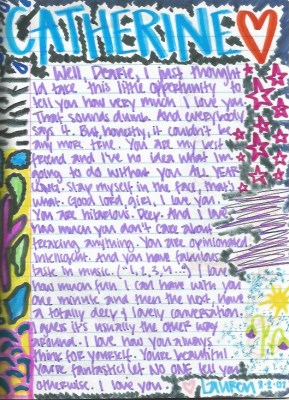 CATHERINE
Well, Dearie, I just thought
I'd take this little opportunity to
tell you how very much I love you.
That sounds dumb. And everybody
says it. But, honestly, it couldn't be
any more true. You are my best
friend and I've no idea what I'm
going to do without you ALL YEAR
LONG. Stay myself in the face, that's
what. Good lord, girl, I love you.
You are hilarious. Deep. And I love
how much you don't care about
fearing anything. You are opinionated.
Intelligent. And you have fabulous
taste in music. ("1, 2, 3, 4..") I love
how much fun I can have with you
one minute and then the next, have
a totally deep & lovely conversation.
I guess it's usually the other way
around. I love how you always
think for yourself. You're beautiful
You're fantastic! Let NO ONE tell you
otherwise. I love you.
Lauren 8-2-07